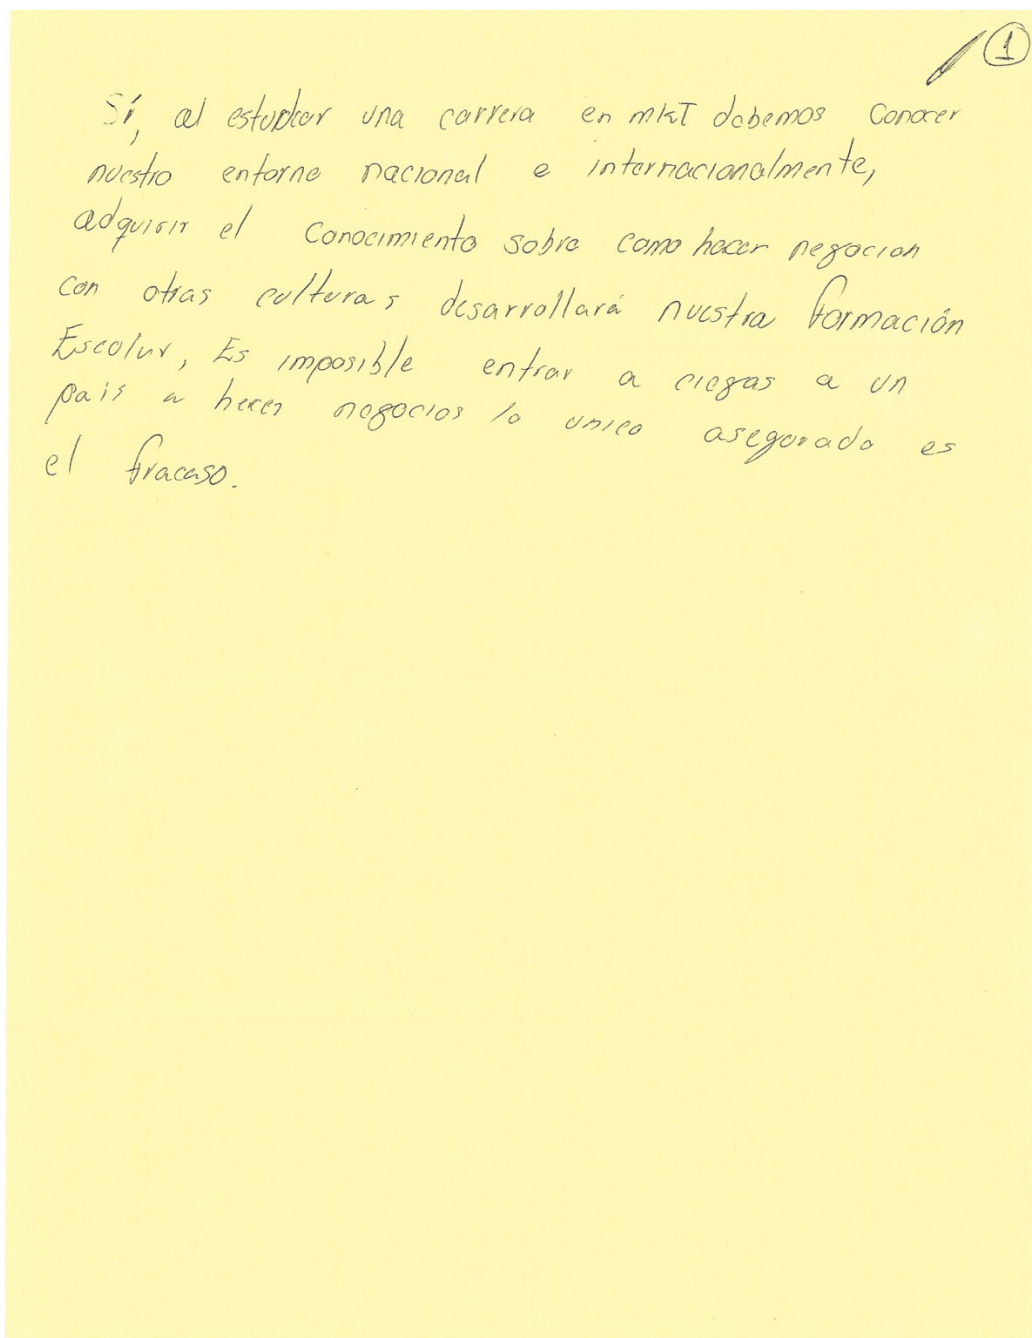 1
Sí, al estudiar una carrera en mkT debemos Conocer
nuestro entorno nacional e internacionalmente,
adquirir el Conocimiento sobre como hacer negocion
con otras culturas desarrollará nuestra formación
Escolar, Es imposible entrar a ciegas a un
país a hacer negocios lo unico asegurado es
el fracaso.